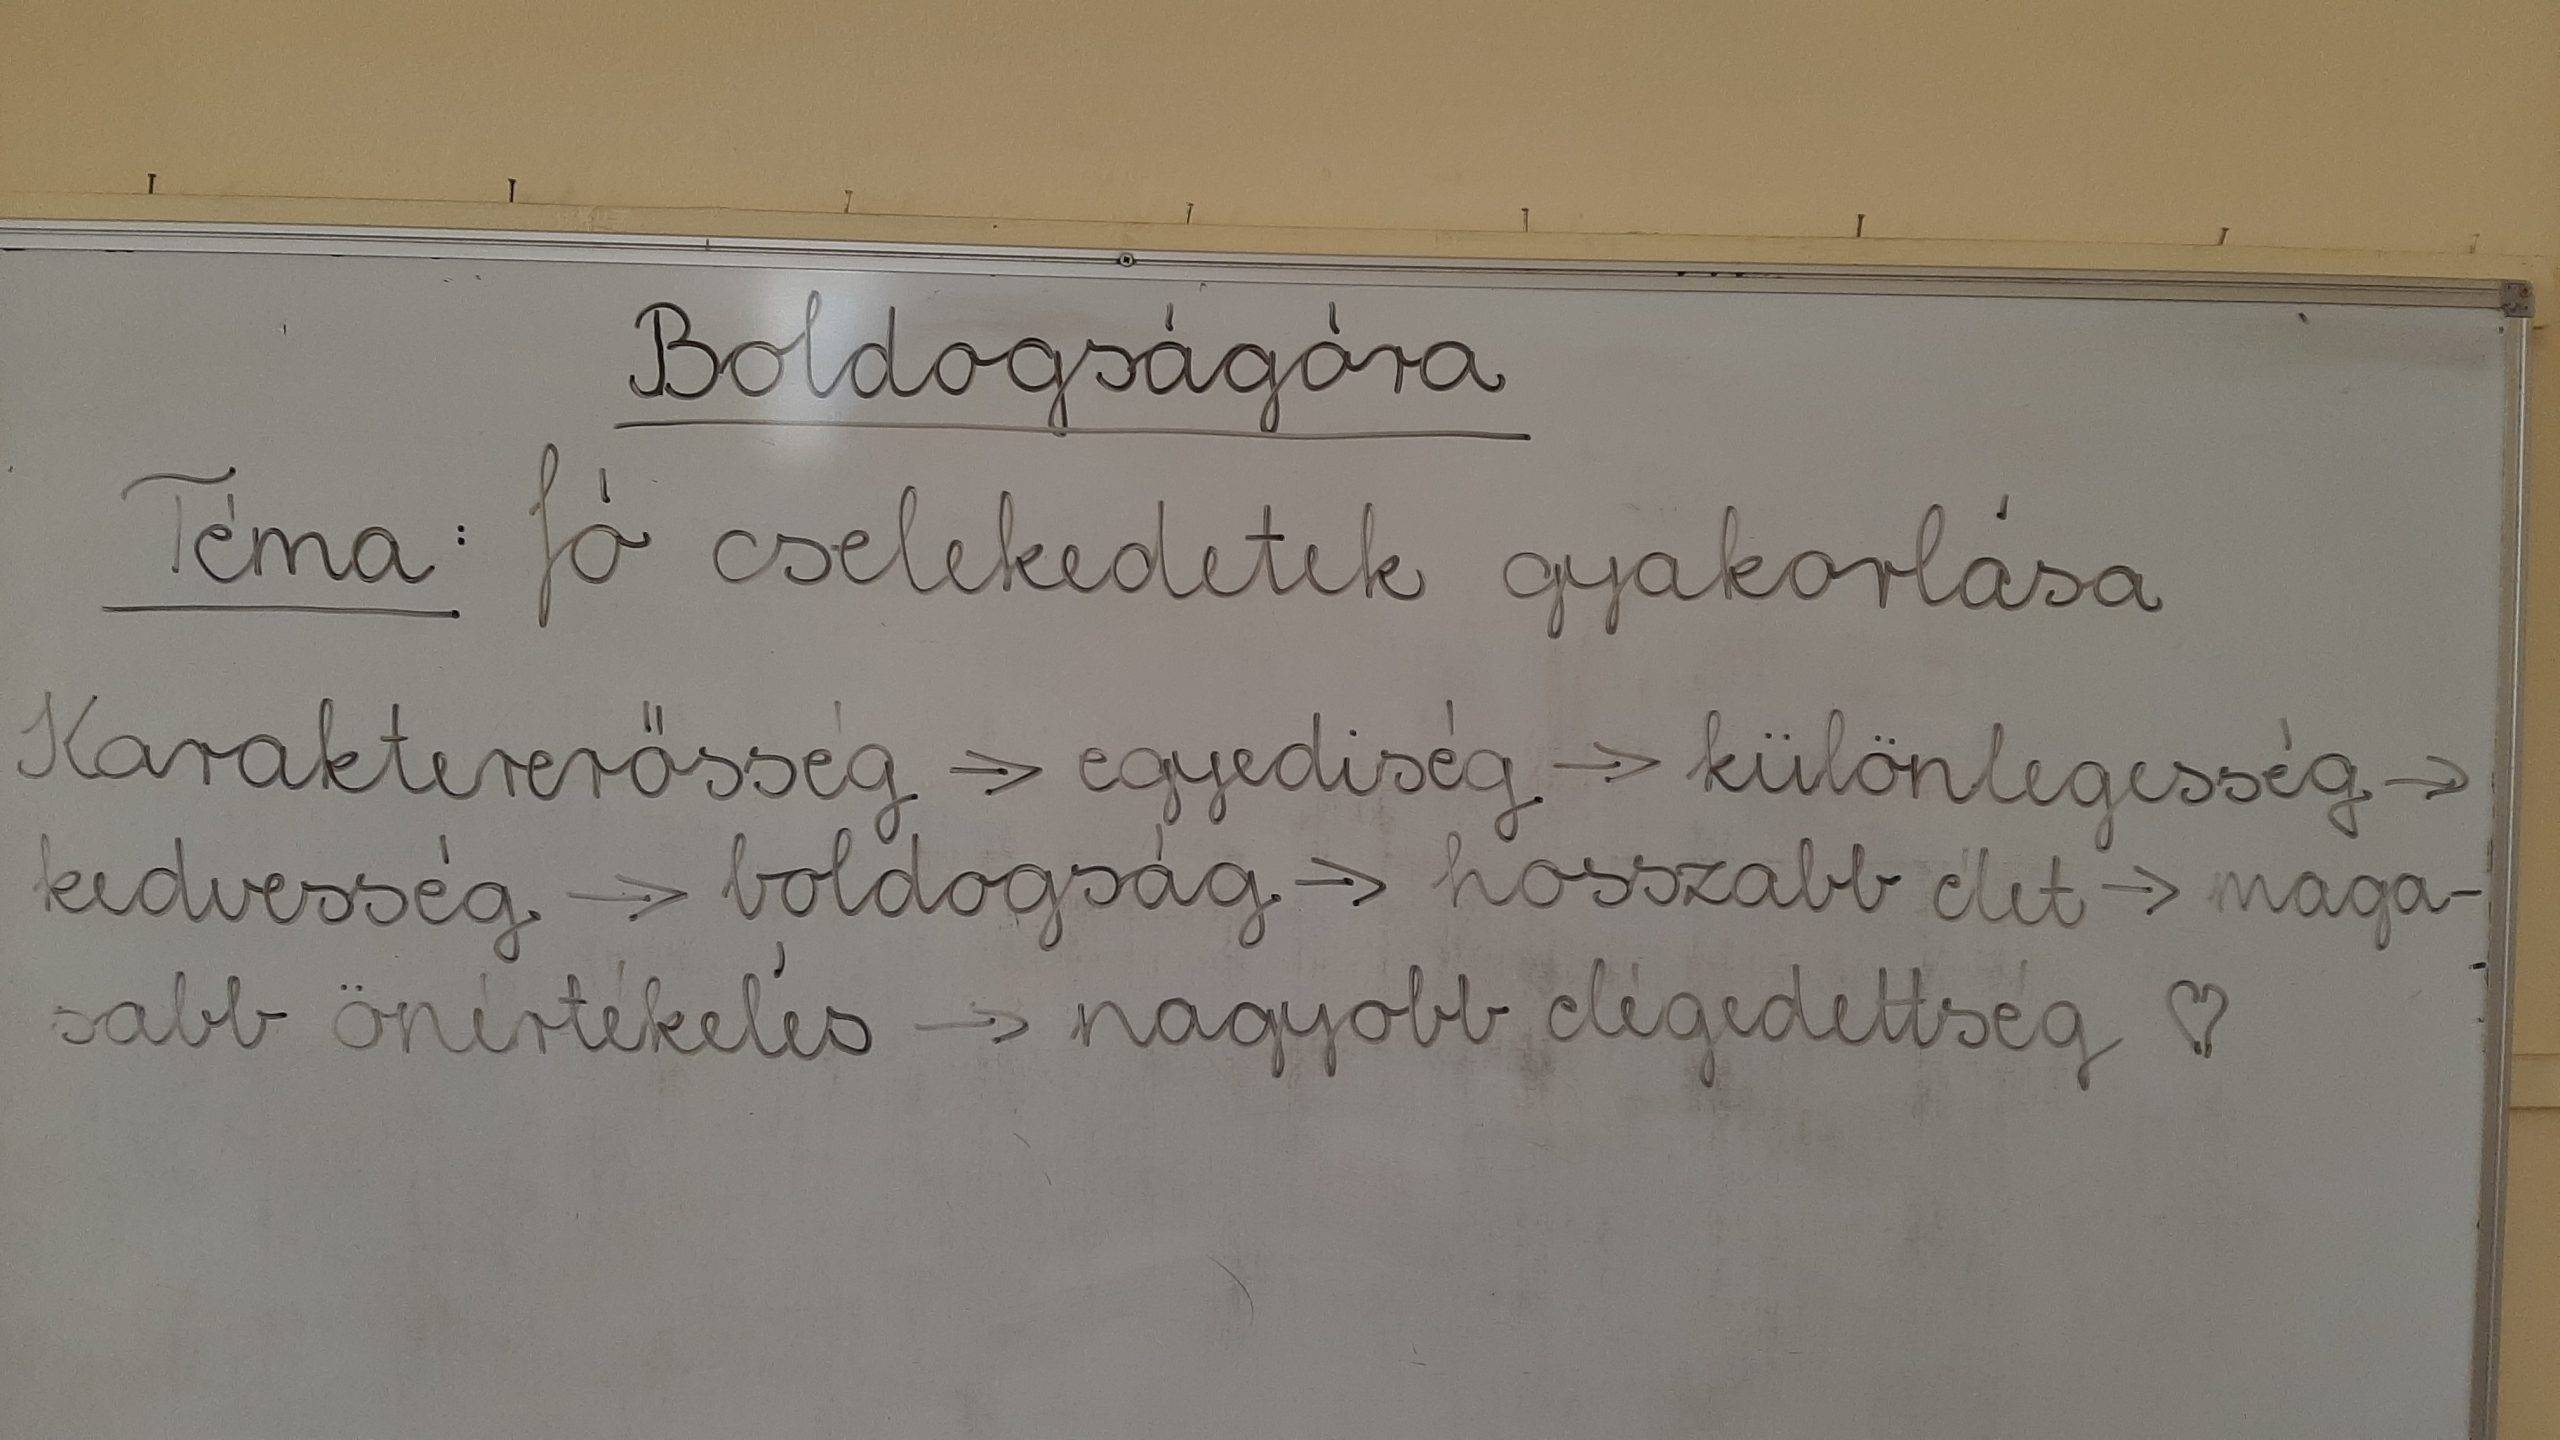 Boldogságóra
Téma: Jó cselekedetek gyakorlása
Karaktererősség → egyediség → különlegesség →
kedvesség → boldogság → hosszabb élet → maga-
sabb önértékelés → nagyobb elégedettség ♡